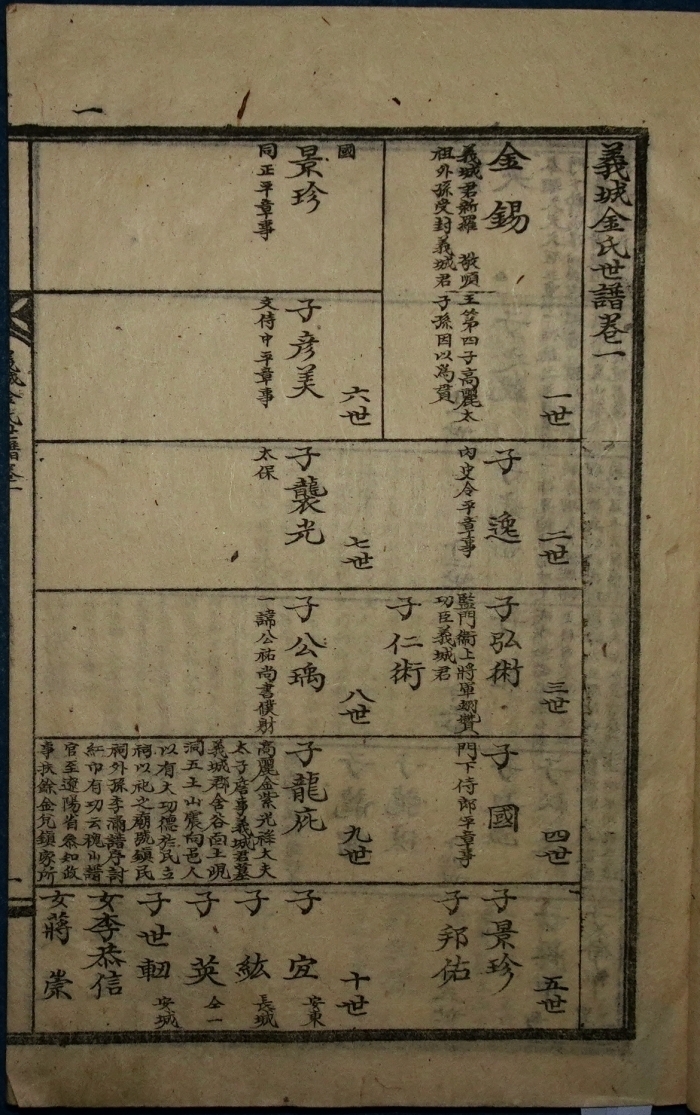 義城金氏世譜卷一
一世
金錫
義城君新羅 敬順王第四子高麗太
祖外孫受封義城君子孫因以為貫
二世
子逸
內史令平章事
三世
子弘術
監門衛上將軍翊贊
功臣義城君
子仁術
四世
子國
門下侍郎平章事
五世
子景珍
子邦佑
國
景珍
同正平章事
六世
子彦美
文侍中平章事
七世
子襲光
太保
八世
子公瑀
一諱公祐尚書僕射
九世
子龍庇
高麗金紫光祿大夫
太子詹事義城君墓
義城郡舍谷面土峴
洞五土山震向邑人
以有大功德於民立
祠以祀之廟號鎮民
祠外孫李譜序討
紅巾有功云槐山譜
官至遼陽省叅知政
事扶餘金允鎮家所
十世
子宜
安東
子紘
長城
子英
仝一
子世軔
安城
女李恭信
女蔣崇
義城金氏世譜卷一
一